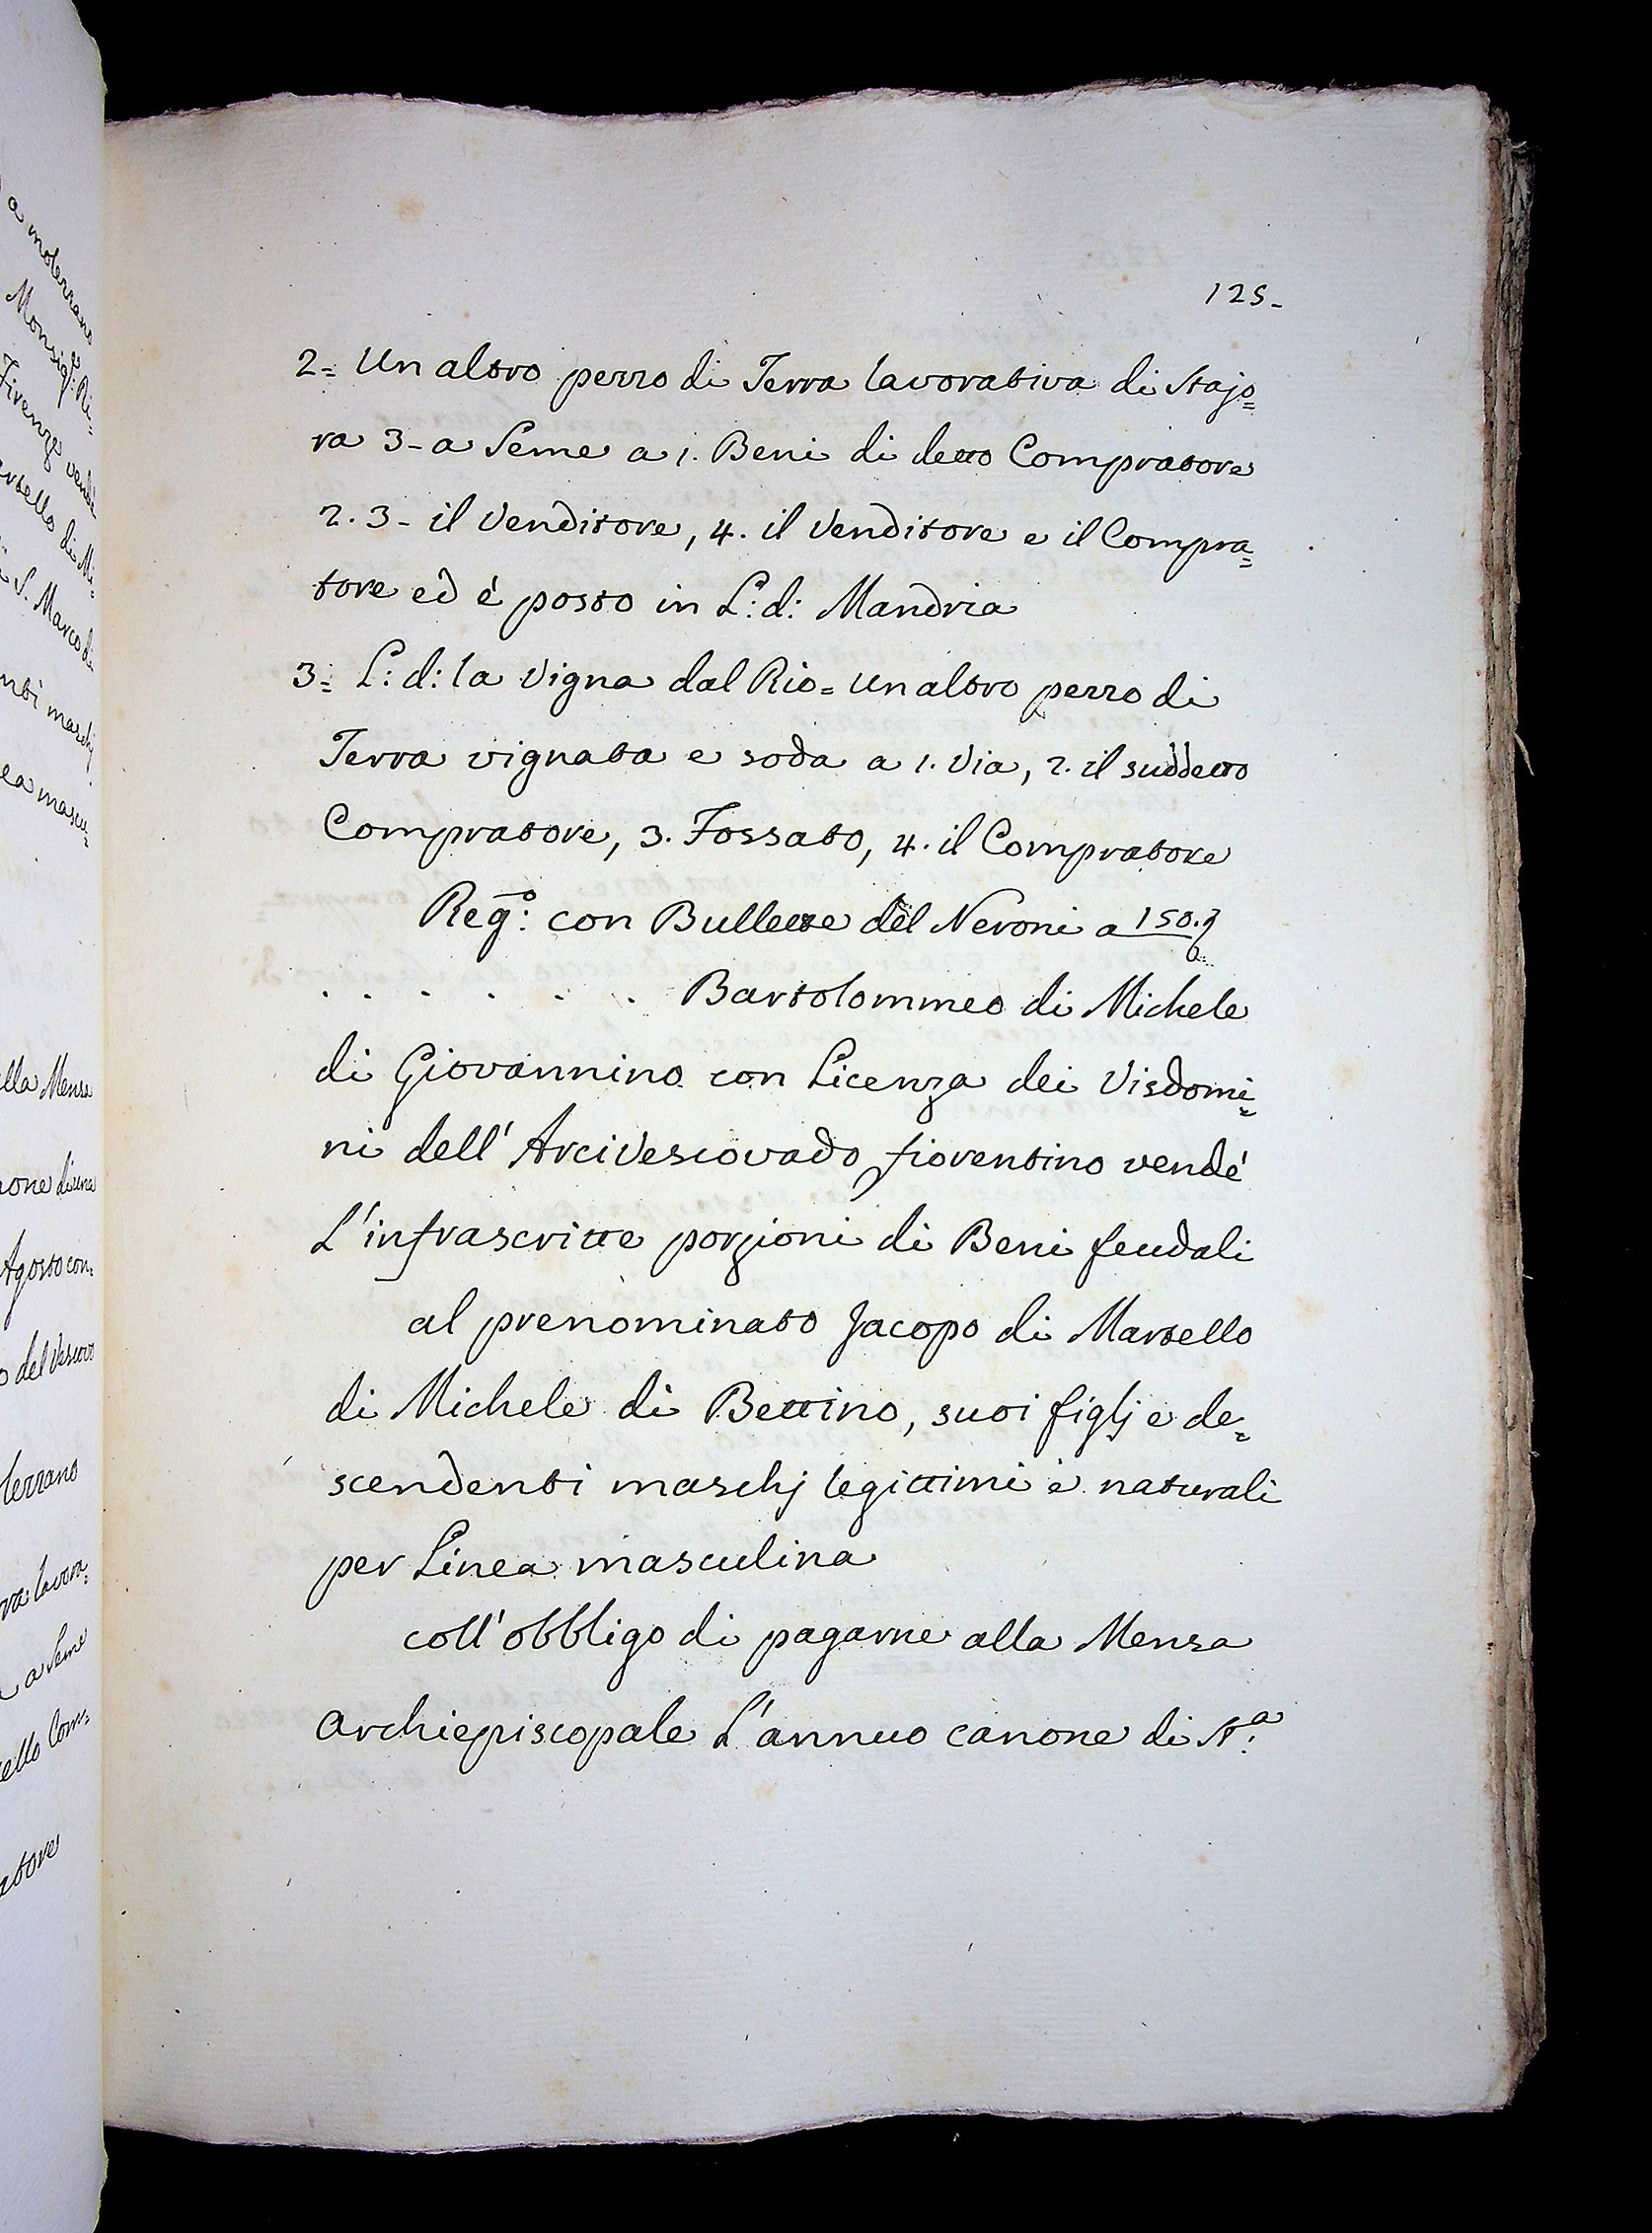 125-
2= Un altro pezzo di Terra lavorativa di Stajo=
ra 3- a Seme a 1. Beni di detto Compratore
2. 3- il Venditore, 4. il Venditore e il Compra=
tore ed è posto in L: d: Mandria
3= L: d: la Vigna dal Rio= Un altro pezzo di
Terra vignata e soda a 1. Via, 2. il suddetto
Compratore, 3. Fossato, 4. il Compratore
Reg:o con Bullette del Neroni a 150.
. . . . . . Bartolommeo di Michele
di Giovannino con Licenza dei Visdomi=
ni dell' ArciVescovado fiorentino vendé
L'infrascritte porzioni di Beni feudali
al prenominato Jacopo di Martello
di Michele di Bettino, suoi figlj e de=
scendenti maschj legittimi e naturali
per Linea masculina
coll' obbligo di pagarne alla Mensa
Archiepiscopale L'annuo canone di St:a
Monsig:
Firenze vende
S. Marco di
alla Mensa
Agosto con=
del Vescovo
terrano
a Seme